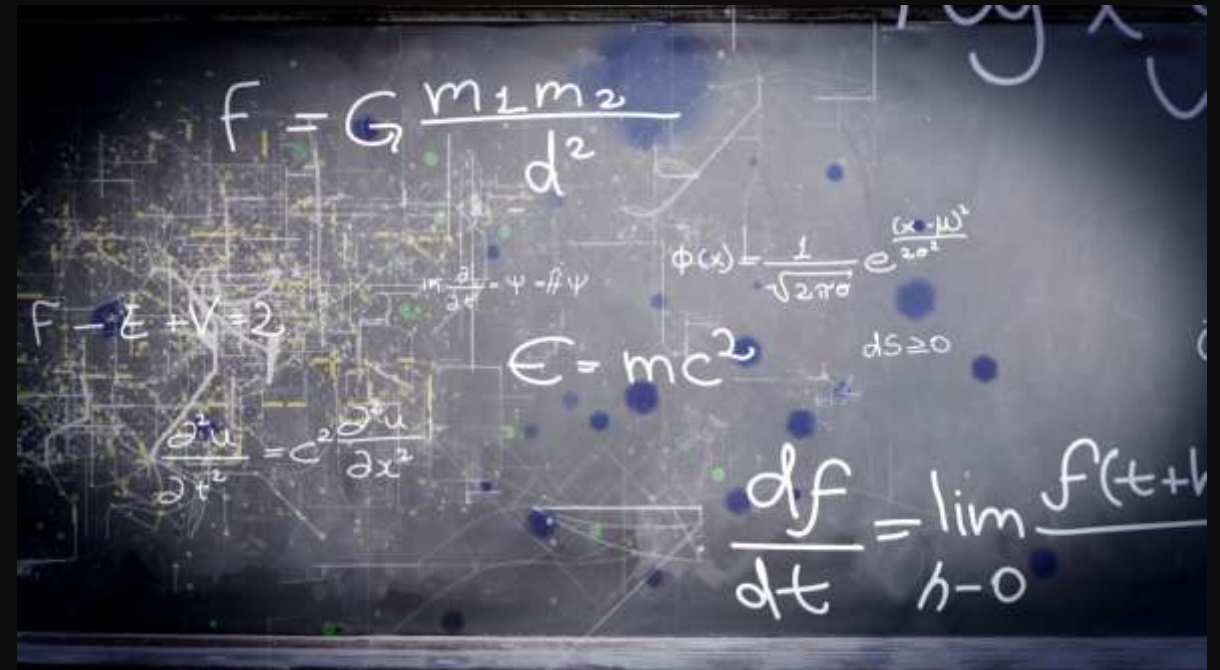 F = G m1m2/d²
ϕ(x) = 1/√2πσ e^(x-μ)²/2σ²
F - E + V = 2
E = mc²
dS ≥ 0
∂²u/∂t² = c² ∂²u/∂x²
df/dt = lim h-0 f(t+h